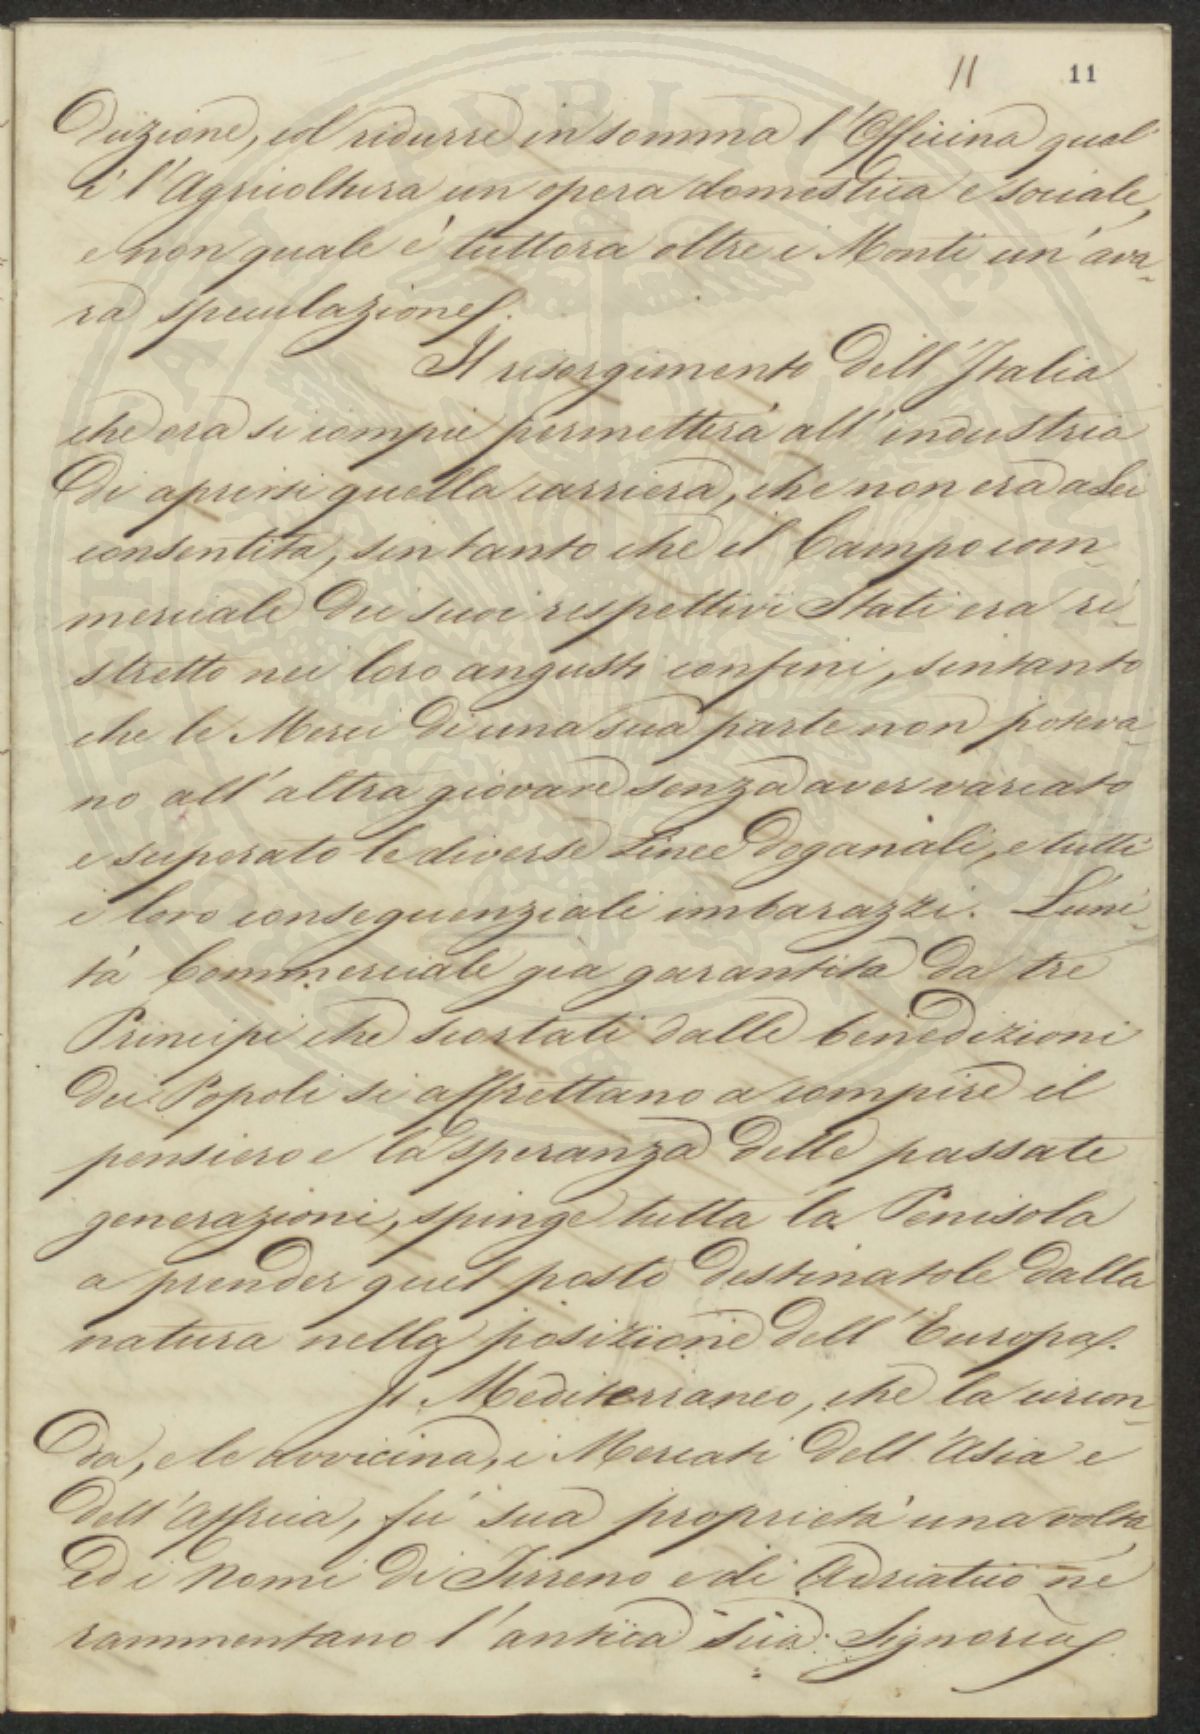 11 11
duzione, col ridurre in somma l'Officina qual'
è l'Agricoltura un opera domestica e sociale,
e non quale é tuttora oltre i Monti un'ava-
ra speculazione.
Il risorgimento dell'Italia
che ora si compie permetterà all'industria
di aprirsi quella carriera, che non era a Lei
consentita, sin tanto che il Campo com-
merciale dei suoi respettivi Stati era ri-
stretto nei loro angusti confini, sintanto
che le Merci di una sua parte non poteva-
no all'altra giovare senza aver variato
e superato le diverse Linee doganali, e tutti
i loro conseguenziali imbarazzi. L'uni-
tà Commerciale già garantita da tre
Principi che scortati dalle benedizioni
dei Popoli si affrettano a compire il
pensiero e la speranza delle passate
generazioni, spinge tutta la Penisola
a prender quel posto destinatole dalla
natura nella posizione dell'Europa.
Il Mediterraneo, che la circon-
da, e le avvicina, i Mercati dell'Asia e
dell'Affrica, fù sua proprietà una volta
Ed i Nomi di Tirreno e di Adriatico ne
rammentano l'antica sua Signoria